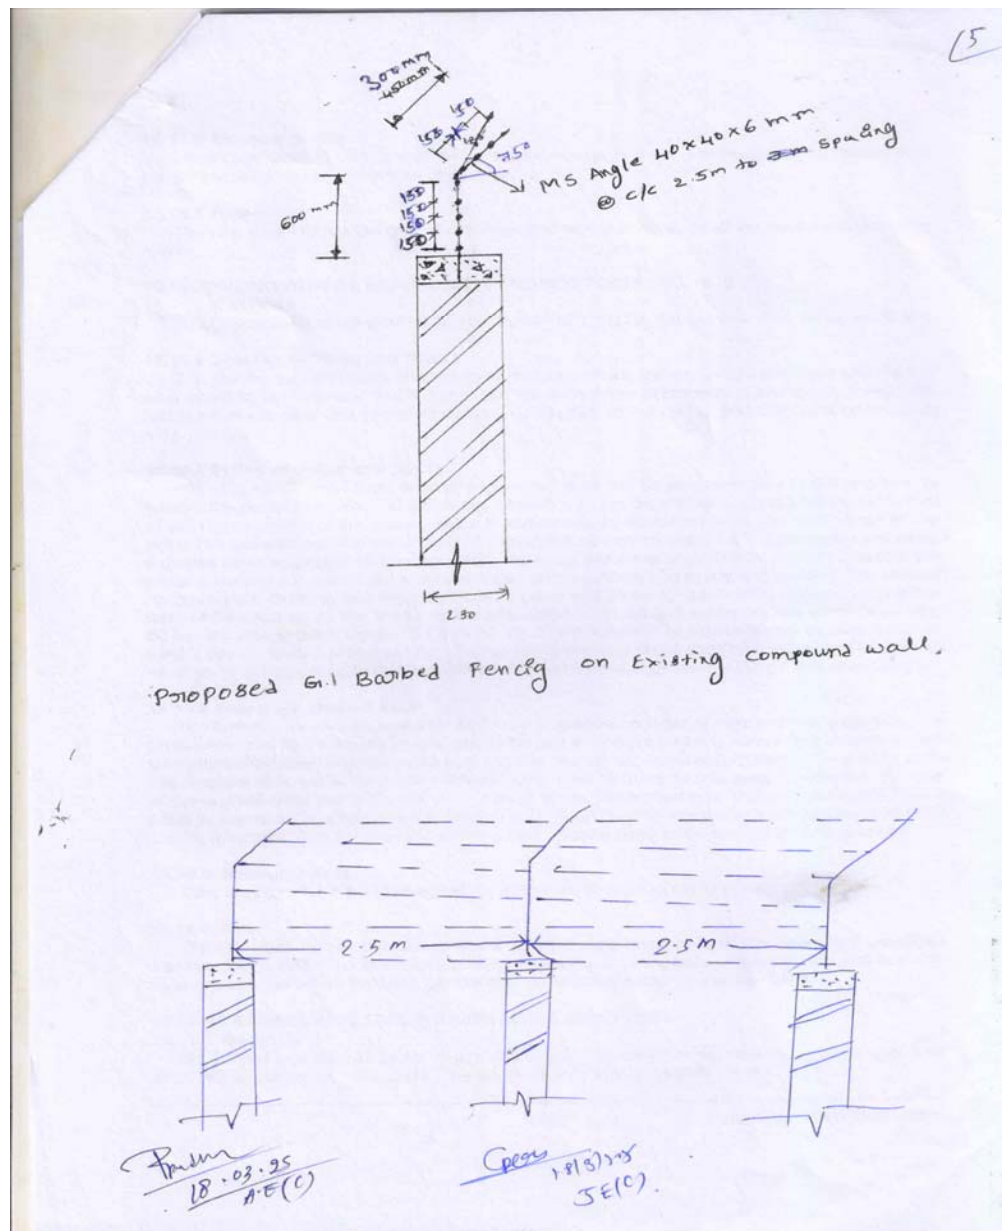 15
300mm
450mm
150
150
150
75°
MS Angle 40x40x6 mm
@ c/c 2.5m to spacing
600 mm
150
150
150
150
230
Proposed G.I Barbed Fencig on Existing compound wall.
2.5m
2.5m
18.03.25
A.E(C)
JE(C).